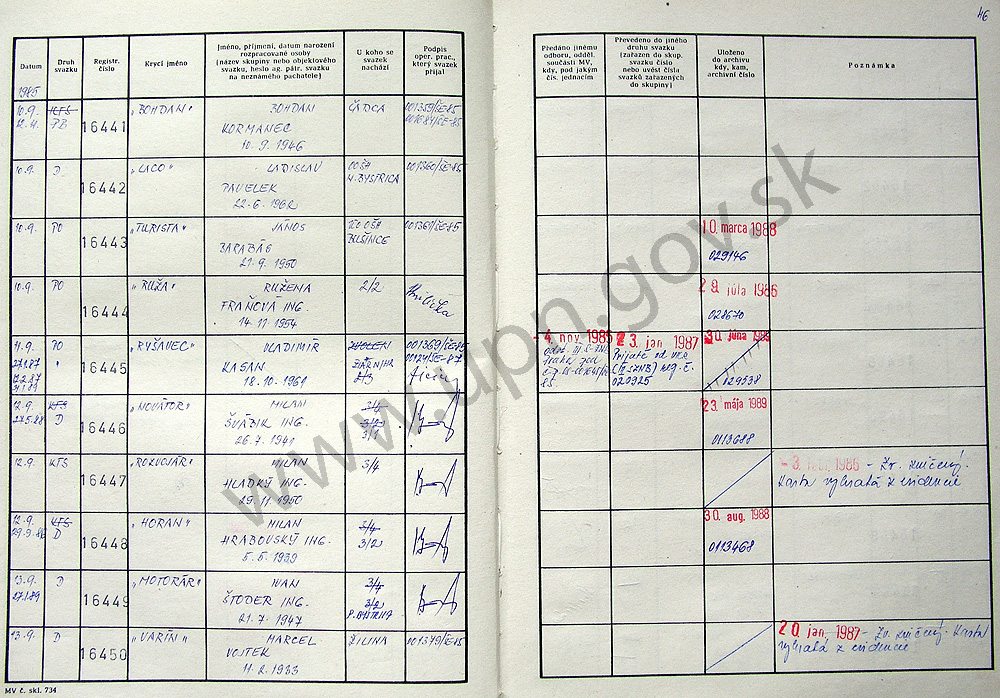 46
Datum
Druh svazku
Registr. číslo
Krycí jméno
Jméno, příjmení, datum narození
rozpracované osoby
(název skupiny nebo objektového
svazku, heslo ag. pátr. svazku
na neznámého pachatele)
U koho se
svazek
nachází
Podpis
oper. prac.,
který svazek
přijal
Předáno jinému
odboru, odděl.
součásti MV,
kdy, pod jakým
čís. jednacím
Převedeno do jiného
druhu svazku
(zařazen do skup.
svazku číslo
nebo uvést čísla
svazků zařazených
do skupiny)
Uloženo
do archivu
kdy, kam,
archivní číslo
Poznámka
1985
10.9. KTS 16441 "BOHDAN" BOHDAN ČADCA 001359/ŠE-85
12.11. PB KORMANEC
10.9.1946
10.9. D 16442 "LACO" LADISLAV OOŠH 001360/ŠE-85
PAVELEK BYSTRICA
22.6.1962
10.9. PO 16443 "TURISTA" JÁNOS 001361/ŠE-85 10. marca 1988
BARABÁS 029146
21.9.1950
10.9. PO 16444 "RUŽA" RUŽENA 2/2 29 júla 1986
FRAŇOVÁ ING. 028670
14.11.1954
11.9. PO 16445 "RYŠAVEC" VLADIMÍR ZVOLEN 001369/ŠE-85 -4. nov. 1985 23. jan. 1987 30. júna 1989
KASAN 2/3 Prijaté od 029538
18.10.1961 020325
12.9. KTS 16446 "NOVÁTOR" MILAN 3/4 23. mája 1989
27.5.88 D ŠVÁBIK ING. 3/2 0113688
26.7.1941
12.9. KTS 16447 "ROZVOJÁR" MILAN 3/4 1986 - Zv. zničený.
HLADKÝ ING. Karta vybratá z evidencie
29.11.1950
12.9. KTS 16448 "HORAN" MILAN 3/4 30 aug. 1988
29.9.86 D HRABOVSKÝ ING. 3/2 0113468
5.5.1939
13.9. D 16449 "MOTORÁR" IVAN 3/4
27.1.89 ŠTODER ING. 3/2
21.7.1947 P. BYSTRICA
13.9. D 16450 "VARÍN" MARCEL ŽILINA 001379/ŠE-85 20. jan. 1987 - Zv. zničený. Karta
VOJTEK vybratá z evidencie
11.2.1933
MV č. skl. 734
www.upn.gov.sk